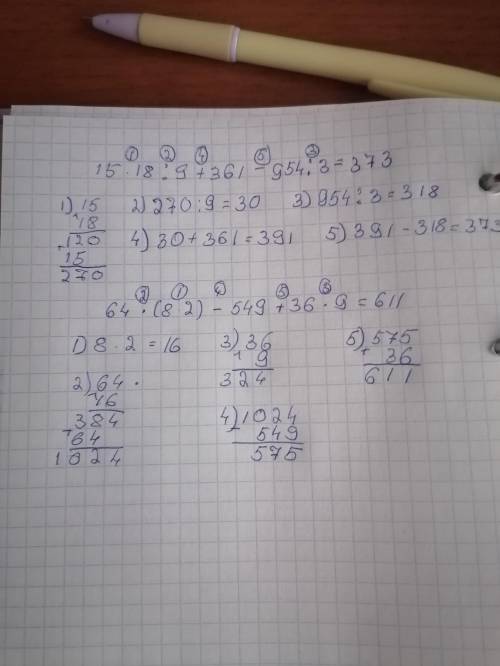 ① ② ④ ⑤ ③
15 · 18 : 9 + 361 - 954 : 3 = 373
1) 15 2) 270 : 9 = 30 3) 954 : 3 = 318
18
120 4) 30 + 361 = 391 5) 391 - 318 = 373
+
15
270
② ① ④ ⑤ ③
64 · (8 2) - 549 + 36 · 9 = 611
1) 8 · 2 = 16 3) 36 5) 575
9 + 36
2) 64 · 324 611
16
384 4) 1024
+ 64 - 549
1024 575